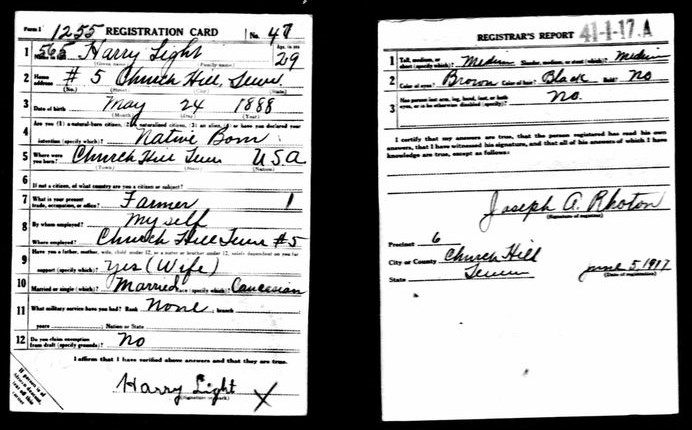 Form 1 1255 REGISTRATION CARD No. 47
1 565 Harry Light Age, in yrs 29
(Given name) (Family name)
2 Home address # 5 Church Hill, Tenn
(No.) (Street) (City) (State)
3 Date of birth May 24 1888
(Month) (Day) (Year)
4 Are you (1) a natural-born citizen, (2) a naturalized citizen, (3) an alien, (4) or have you declared your
intention (specify which)? Native Born
5 Where were you born? Church Hill Tenn U.S.A
(Town) (State) (Nation)
6 If not a citizen, of what country are you a citizen or subject?
7 What is your present trade, occupation, or office? Farmer 1
8 By whom employed? My self
Where employed? Church Hill Tenn #5
9 Have you a father, mother, wife, child under 12, or a sister or brother under 12, solely dependent on you for
support (specify which)? Yes (Wife)
10 Married or single (which)? Married Race (specify which)? Caucasian
11 What military service have you had? Rank None ; branch
years ; Nation or State
12 Do you claim exemption from draft (specify grounds)? No
I affirm that I have verified above answers and that they are true.
Harry Light X
(Signature or mark)
If person is of African descent, tear off this corner
REGISTRAR'S REPORT 41-1-17.A
1 Tall, medium, or short (specify which)? Medium Slender, medium, or stout (which)? Medium
2 Color of eyes? Brown Color of hair? Black Bald? No
3 Has person lost arm, leg, hand, foot, or both eyes, or is he otherwise disabled (specify)?
No.
I certify that my answers are true, that the person registered has read his own
answers, that I have witnessed his signature, and that all of his answers of which I have
knowledge are true, except as follows:
Joseph A. Rhoton
(Signature of registrar)
Precinct 6
City or County Church Hill
State Tenn June 5, 1917
(Date of registration)